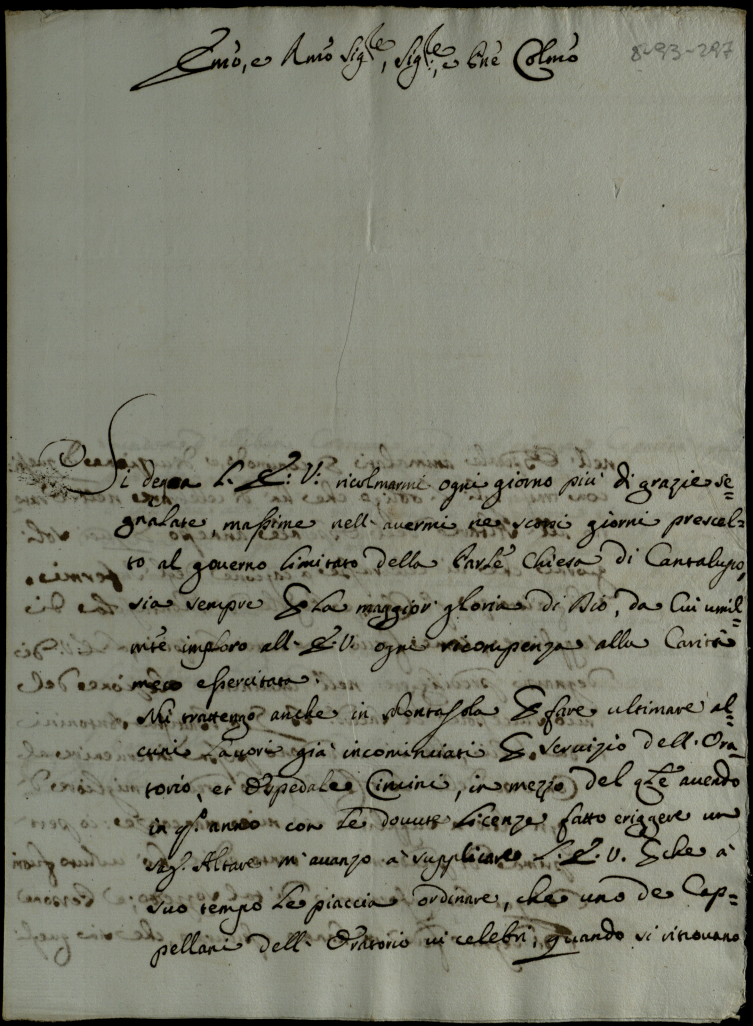 8-93-297
Emo, e Rmo Sigre, Sigre, e Pne Colmo
Si degna L. E: V: ricolmarmi ogni giorno più di grazie se=
gnalate, massime nell'avermi ne scorsi giorni prescel=
to al governo limitato della Parle Chiesa di Cantalupo,
sia sempre per la maggior gloria di Dio, da Cui umil=
mte imploro all'E.V. ogni ricompenza alla Carità
meco essercitata.
Mi trattengo anche in Montasola per fare ultimare al=
cuni Lavori già incominciati per servizio dell'Ora=
torio, et Ospedale Cimini, in mezzo del qle avendo
in qo anno con le dovute licenze fatto eriggere un
Altare m'avanzo a supplicare L.E.V. perche a
suo tempo le piaccia ordinare, che uno de Cap=
pellani dell'Oratorio vi celebri, quando si ritrovano